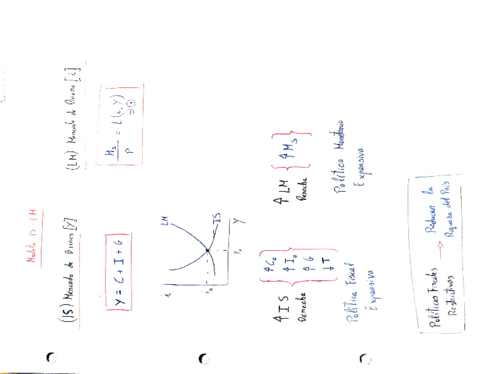 Modelo IS LM
(IS) Mercado de Bienes [Y]
(LM) Mercado de Dinero [i]
Y = C + I + G
Ms / P = L (i, Y)
⊖ ⊕
i
LM
IS
i₀
Y₀
Y
↑ IS { ↑ C₀
Derecha ↑ I₀
↑ G
↓ T
Política Fiscal
Expansiva
↑ LM { ↑ Ms }
Derecha
Política Monetaria
Expansiva
Políticas Fiscales → Reducen la
Restrictivas Riqueza del País